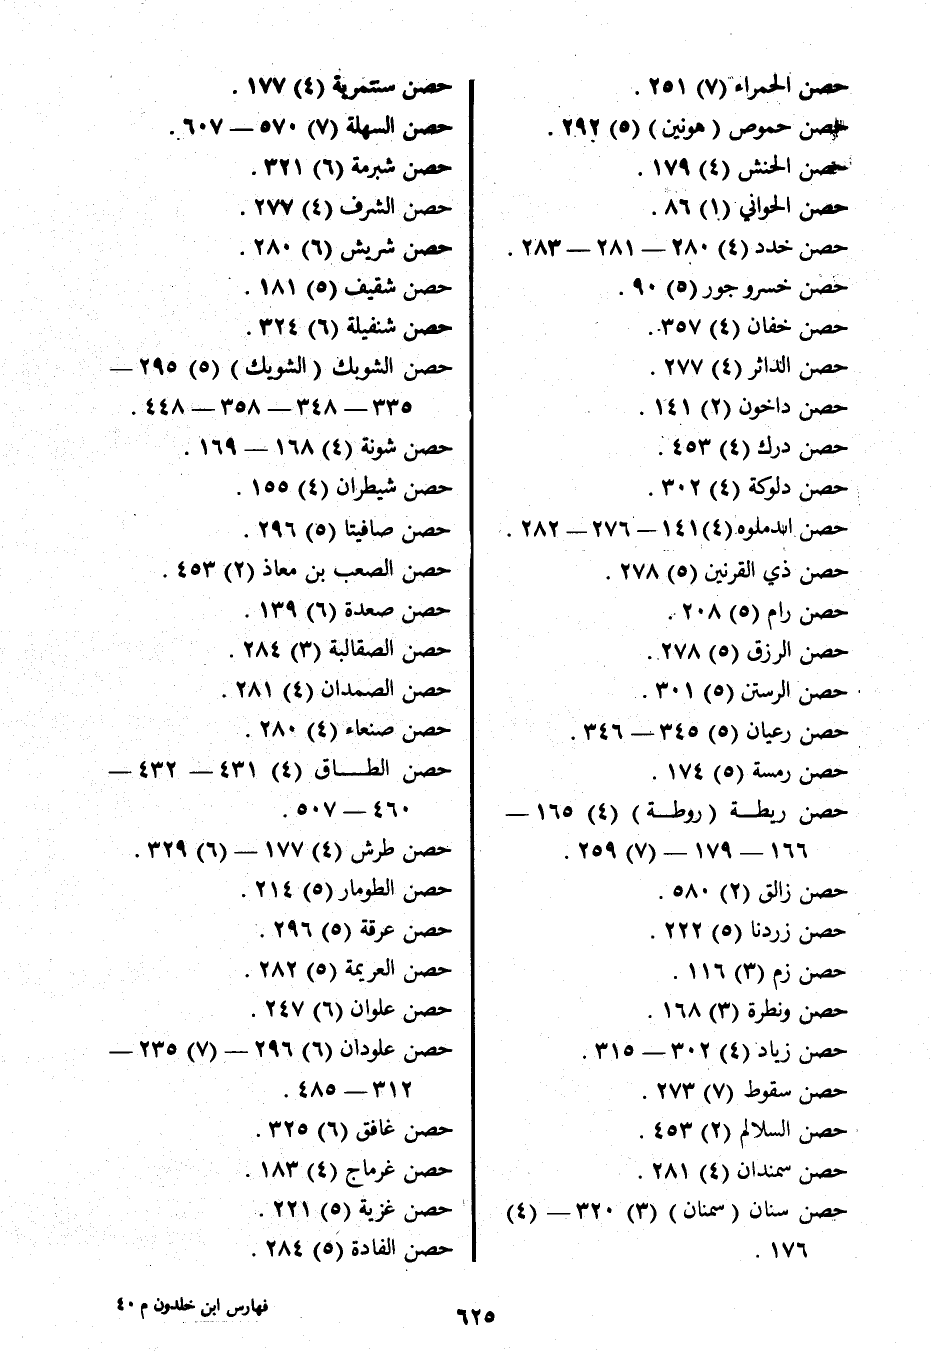 حصن الحمراء (٧) ٢٥١ .
حصن حموص ( هونين ) (٥) ٢٩٢ .
حصن الحنش (٤) ١٧٩ .
حصن الحواني (١) ٨٦ .
حصن خدد (٤) ٢٨٠ — ٢٨١ — ٢٨٣ .
حصن خسرو جور (٥) ٩٠ .
حصن خفان (٤) ٣٥٧ .
حصن الداثر (٤) ٢٧٧ .
حصن داخون (٢) ١٤١ .
حصن درك (٤) ٤٥٣ .
حصن دلوكة (٤) ٣٠٢ .
حصن الدملوه (٤) ١٤١ — ٢٧٦ — ٢٨٢ .
حصن ذي القرنين (٥) ٢٧٨ .
حصن رام (٥) ٢٠٨ .
حصن الرزق (٥) ٢٧٨ .
حصن الرستن (٥) ٣٠١ .
حصن رعبان (٥) ٣٤٥ — ٣٤٦ .
حصن رمسة (٥) ١٧٤ .
حصن ريطـة ( روطـة ) (٤) ١٦٥ —
١٦٦ — ١٧٩ — (٧) ٢٥٩ .
حصن زالق (٢) ٥٨٠ .
حصن زردنا (٥) ٢٢٢ .
حصن زم (٣) ١١٦ .
حصن ونطرة (٣) ١٦٨ .
حصن زياد (٤) ٣٠٢ — ٣١٥ .
حصن سقوط (٧) ٢٧٣ .
حصن السلالم (٢) ٤٥٣ .
حصن سمندان (٤) ٢٨١ .
حصن سنان ( سمنان ) (٣) ٣٢٠ — (٤)
١٧٦ .
حصن سنتمرية (٤) ١٧٧ .
حصن السهلة (٧) ٥٧٠ — ٦٠٧ .
حصن شبرمة (٦) ٣٢١ .
حصن الشرف (٤) ٢٧٧ .
حصن شريش (٦) ٢٨٠ .
حصن شقيف (٥) ١٨١ .
حصن شنفيلة (٦) ٣٢٤ .
حصن الشوبك ( الشويك ) (٥) ٢٩٥ —
٣٣٥ — ٣٤٨ — ٣٥٨ — ٤٤٨ .
حصن شونة (٤) ١٦٨ — ١٦٩ .
حصن شيطران (٤) ١٥٥ .
حصن صافيتا (٥) ٢٩٦ .
حصن الصعب بن معاذ (٢) ٤٥٣ .
حصن صعدة (٦) ١٣٩ .
حصن الصقالبة (٣) ٢٨٤ .
حصن الصمدان (٤) ٢٨١ .
حصن صنعاء (٤) ٢٨٠ .
حصن الطــاق (٤) ٤٣١ — ٤٣٢ —
٤٦٠ — ٥٠٧ .
حصن طرش (٤) ١٧٧ — (٦) ٣٢٩ .
حصن الطومار (٥) ٢١٤ .
حصن عرقة (٥) ٢٩٦ .
حصن العريمة (٥) ٢٨٢ .
حصن علوان (٦) ٢٤٧ .
حصن علودان (٦) ٢٩٦ — (٧) ٢٣٥ —
٣١٢ — ٤٨٥ .
حصن غافق (٦) ٣٢٥ .
حصن غرماج (٤) ١٨٣ .
حصن غزية (٥) ٢٢١ .
حصن الفادة (٥) ٢٨٤ .
٦٢٥
فهارس ابن خلدون م ٤٠